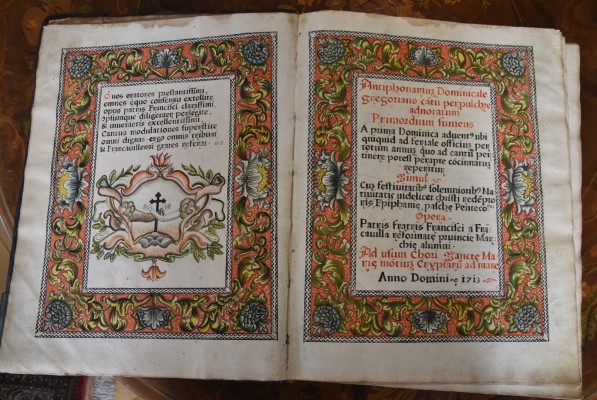 Quos oratores prestantissimi,
omnes equo consensu extollite
opus patris Francisci clarissimi,
ipsumque diligenter perlegite,
& invenietis excellentissimi,
Cantus modulationes superstite
omni dignas ergo omnes tribuni
& Francavillensi grates referat
Antiphonarium Dominicale
gregoriano cātu perpulchre
adnotatum
Primordium sumens
A prima Dominica adventꝰ ubi
quiquid ad feriale officium per
totum annum quo ad cantū per
tinere potest perapte cōcinnatur
reperitur
Simul
Cū festivitatibꝰ solemnioribꝰ Na
tivitatis videlicet christi redēpto
ris Epiphanie, pasche Penteco
Opera
Patris Fratris Francisci a Frā
cavilla reformate provincie Mar
chie alumni
Ad usum Chori Sancte Ma
ris motus Cryptarū ad mare
Anno Domini 1713